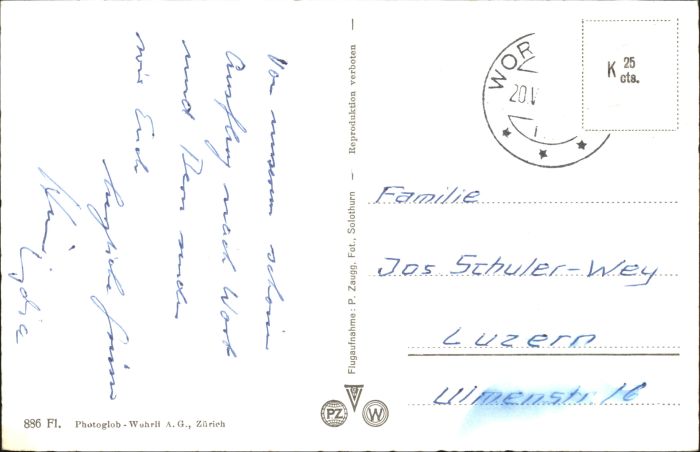 Von unserem schönen
Ausflug nach Worb
und Bern senden
wir Euch
herzliche Grüsse
Lydia
886 Fl. Photoglob-Wehrli A.G., Zürich
Flugaufnahme: P. Zaugg, Fot., Solothurn — Reproduktion verboten —
PZ
W
WOR
20.
K 25
cts.
Familie
Jos Schuler-Wey
Luzern
Ulmenstr. 16